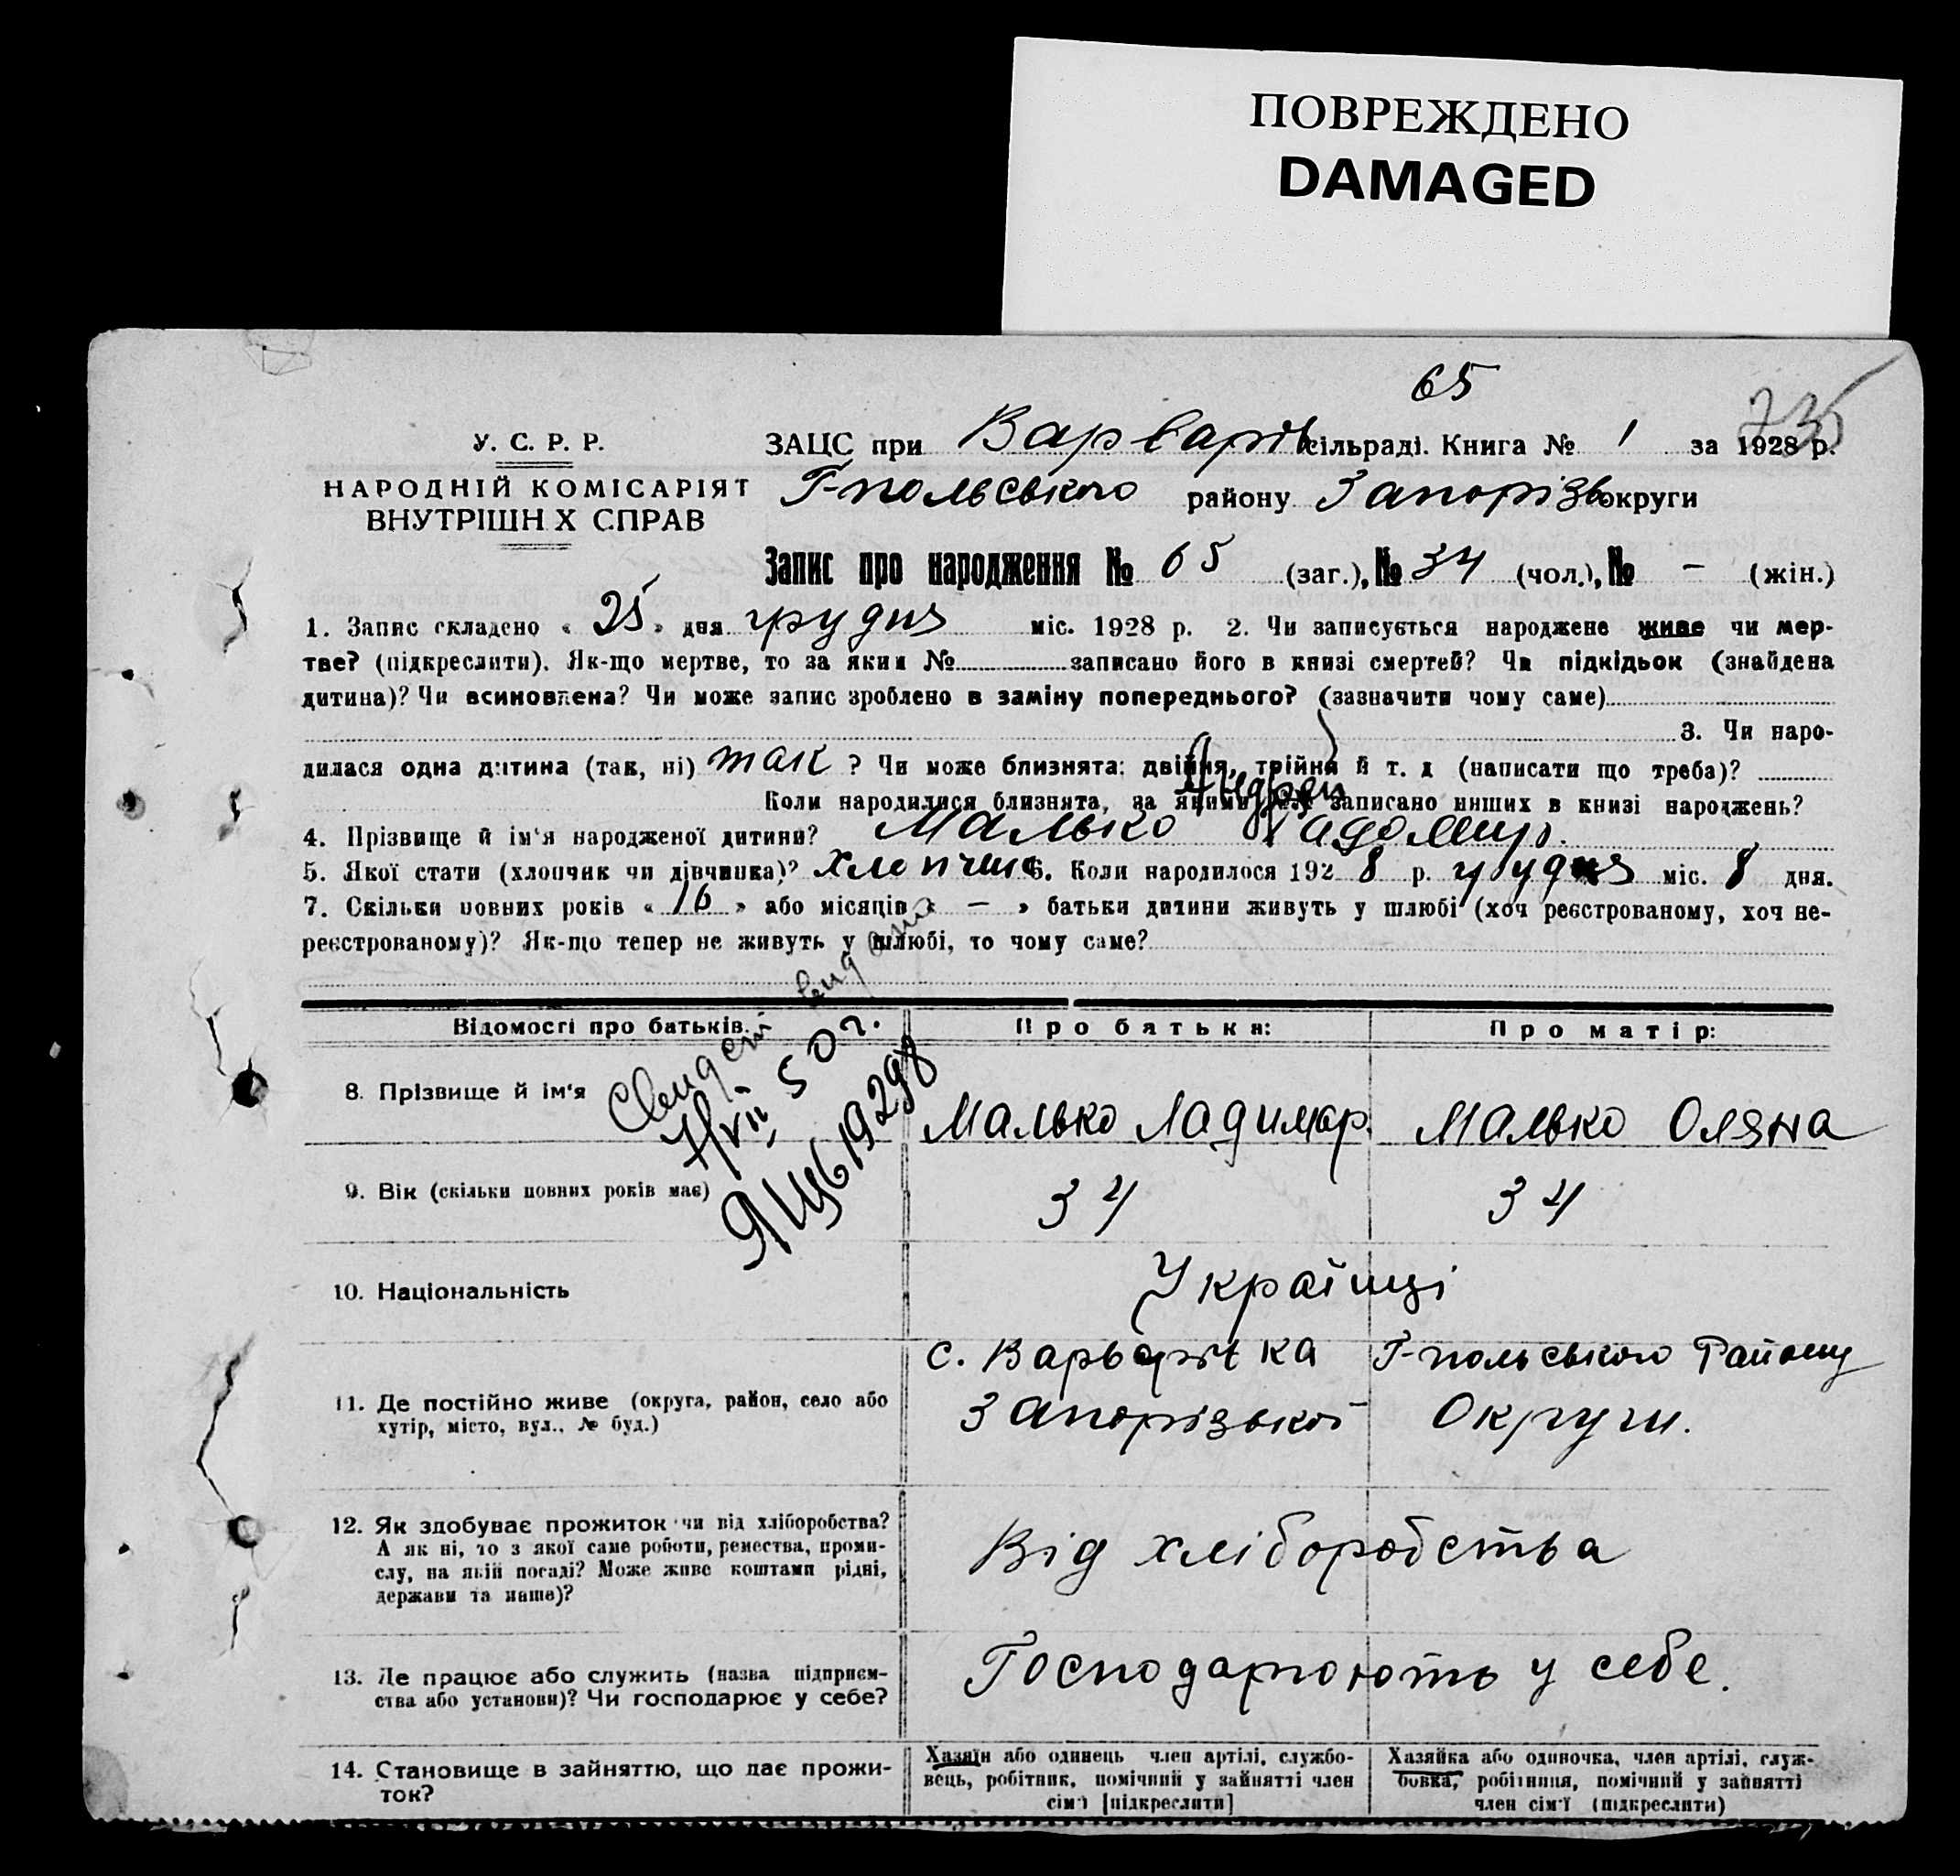 ПОВРЕЖДЕНО
DAMAGED
65
735
У. С. Р. Р.
НАРОДНІЙ КОМІСАРІЯТ
ВНУТРІШН Х СПРАВ
ЗАЦС при Варварів сільраді. Книга № 1 за 1928 р.
Г-польського району Запорізь округи
Запис про народження № 65 (заг.), № 34 (чол.), № – (жін.)
1. Запис складено « 25 » дня грудня міс. 1928 р. 2. Чи записується народжене живе чи мер-
тве? (підкреслити). Як-що мертве, то за яким № записано його в книзі смертей? Чи підкідьок (знайдена
дитина)? Чи всиновлена? Чи може запис зроблено в заміну попереднього? (зазначити чому саме)
3. Чи наро-
дилася одна дитина (так, ні) так ? Чи може близнята: двійня, трійня й т. д (написати що треба)?
Коли народилися близнята, за якими записано инших в книзі народжень?
Андрей
4. Прізвище й ім'я народженої дитини? Малько Ладомир.
5. Якої статі (хлопчик чи дівчинка)? хлопчик 6. Коли народилося 1928 р. грудня міс. 8 дня.
7. Скільки повних років « 16 » або місяців « – » батьки дитини живуть у шлюбі (хоч реєстрованому, хоч не-
реєстрованому)? Як-що тепер не живуть у шлюбі, то чому саме?
Відомості про батьків.
Про батька:
Про матір:
Свидет видано
7/VII 50 г.
ЯЦ 619298
8. Прізвище й ім'я
Малько Ладимир.
Малько Оляна
9. Вік (скільки повних років має)
34
34
10. Національність
Українці
11. Де постійно живе (округа, район, село або
хутір, місто, вул., № буд.)
с. Варварівка Г-польського Району
Запорізької Округи.
12. Як здобуває прожиток чи від хліборобства?
А як ні, то з якої саме роботи, ремества, проми-
слу, на якій посаді? Може живе коштами рідні,
держави та инше)?
Від хліборобства
13. Де працює або служить (назва підприєм-
ства або установи)? Чи господарює у себе?
Господарюють у себе.
14. Становище в зайняттю, що дає прожи-
ток?
Хазяїн або одинець член артілі, службо-
вець, робітник, помічний у зайнятті член
сім'ї [підкреслити]
Хазяйка або одиночка, член артілі, служ-
бовка, робітниця, помічний у зайнятті
член сім'ї (підкреслити)